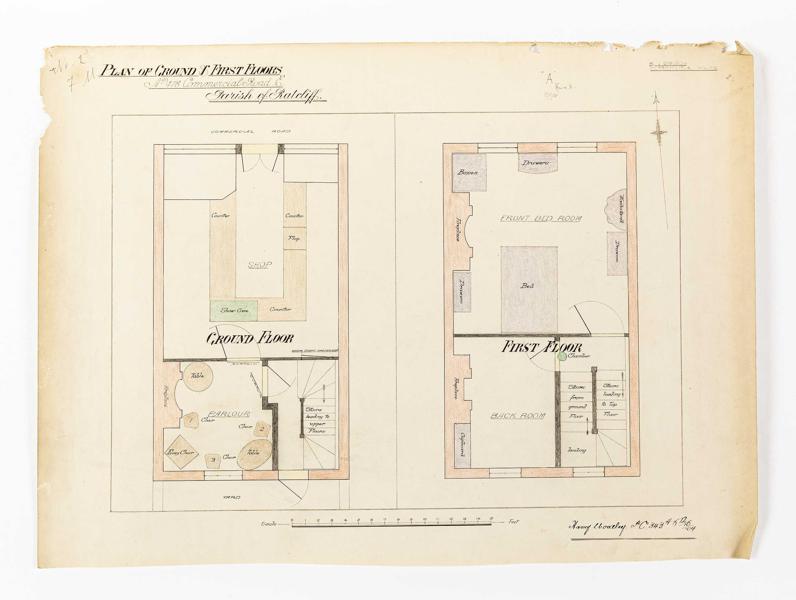 PLAN OF GROUND & FIRST FLOORS
Nº 178 Commercial Road E.
Parish of Ratcliff.
"A"
COMMERCIAL ROAD
Counter
Counter
Flap
SHOP
Show Case
Counter
GROUND FLOOR
Fireplace
Table
PARLOUR
1 Chair
Chair 2
Easy Chair
3 Chair
Table
Stairs
leading to
upper
Floors
YARD
Boxes
Drawers
Fireplace
FRONT BED ROOM
Washstand
Drawers
Drawers
Bed
FIRST FLOOR
Chamber
Fireplace
BACK ROOM
Cupboard
Stairs
from
ground
Floor
Stairs
leading
to Top
Floor
landing
Scale
Feet
Harry Woodley P.C. 343 H